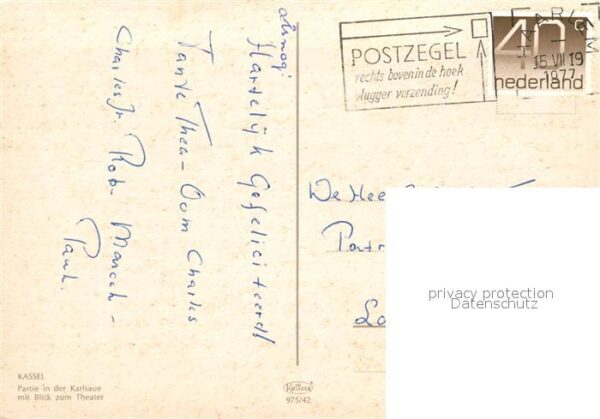 alsnog
Hartelijk Gefeliciteerd
Tante Thea - Oom Charles
Charles Jr Rob - Marcel -
Paul.
KASSEL
Partie in der Karlsaue
mit Blick zum Theater
POSTZEGEL
rechts boven in de hoek
vlugger verzending!
HAARLEM
15 VII 19
1977
40 c
nederland
De Hee
privacy protection
Datenschutz
Krüger
975/42